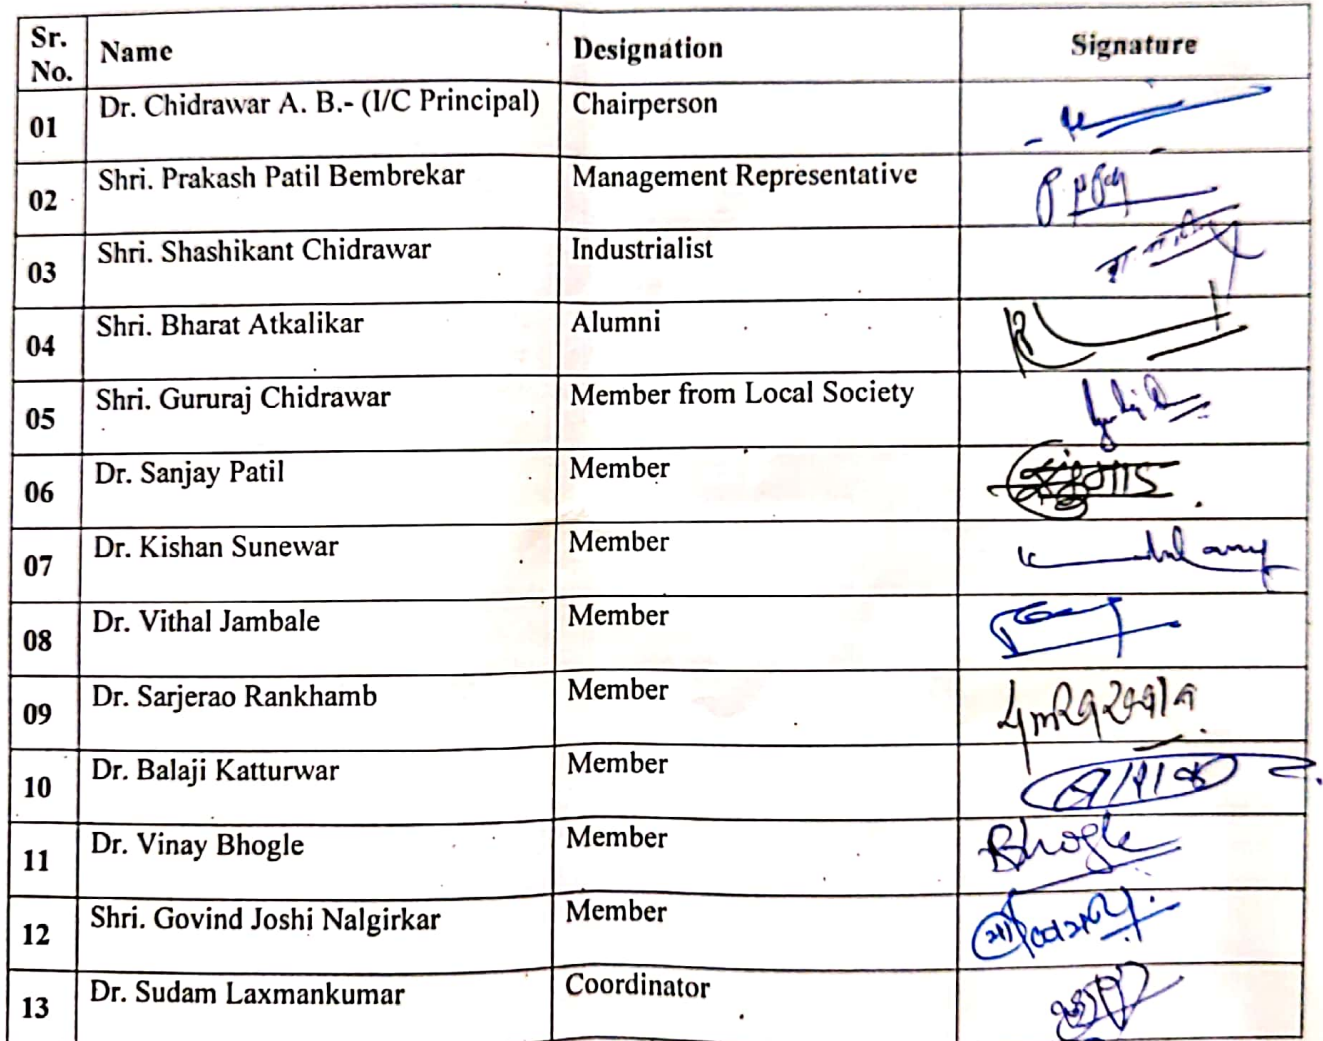 Sr. No. Name Designation Signature
01 Dr. Chidrawar A. B.- (I/C Principal) Chairperson
02 Shri. Prakash Patil Bembrekar Management Representative
03 Shri. Shashikant Chidrawar Industrialist
04 Shri. Bharat Atkalikar Alumni
05 Shri. Gururaj Chidrawar Member from Local Society
06 Dr. Sanjay Patil Member
07 Dr. Kishan Sunewar Member
08 Dr. Vithal Jambale Member
09 Dr. Sarjerao Rankhamb Member
10 Dr. Balaji Katturwar Member
11 Dr. Vinay Bhogle Member Bhogle
12 Shri. Govind Joshi Nalgirkar Member
13 Dr. Sudam Laxmankumar Coordinator